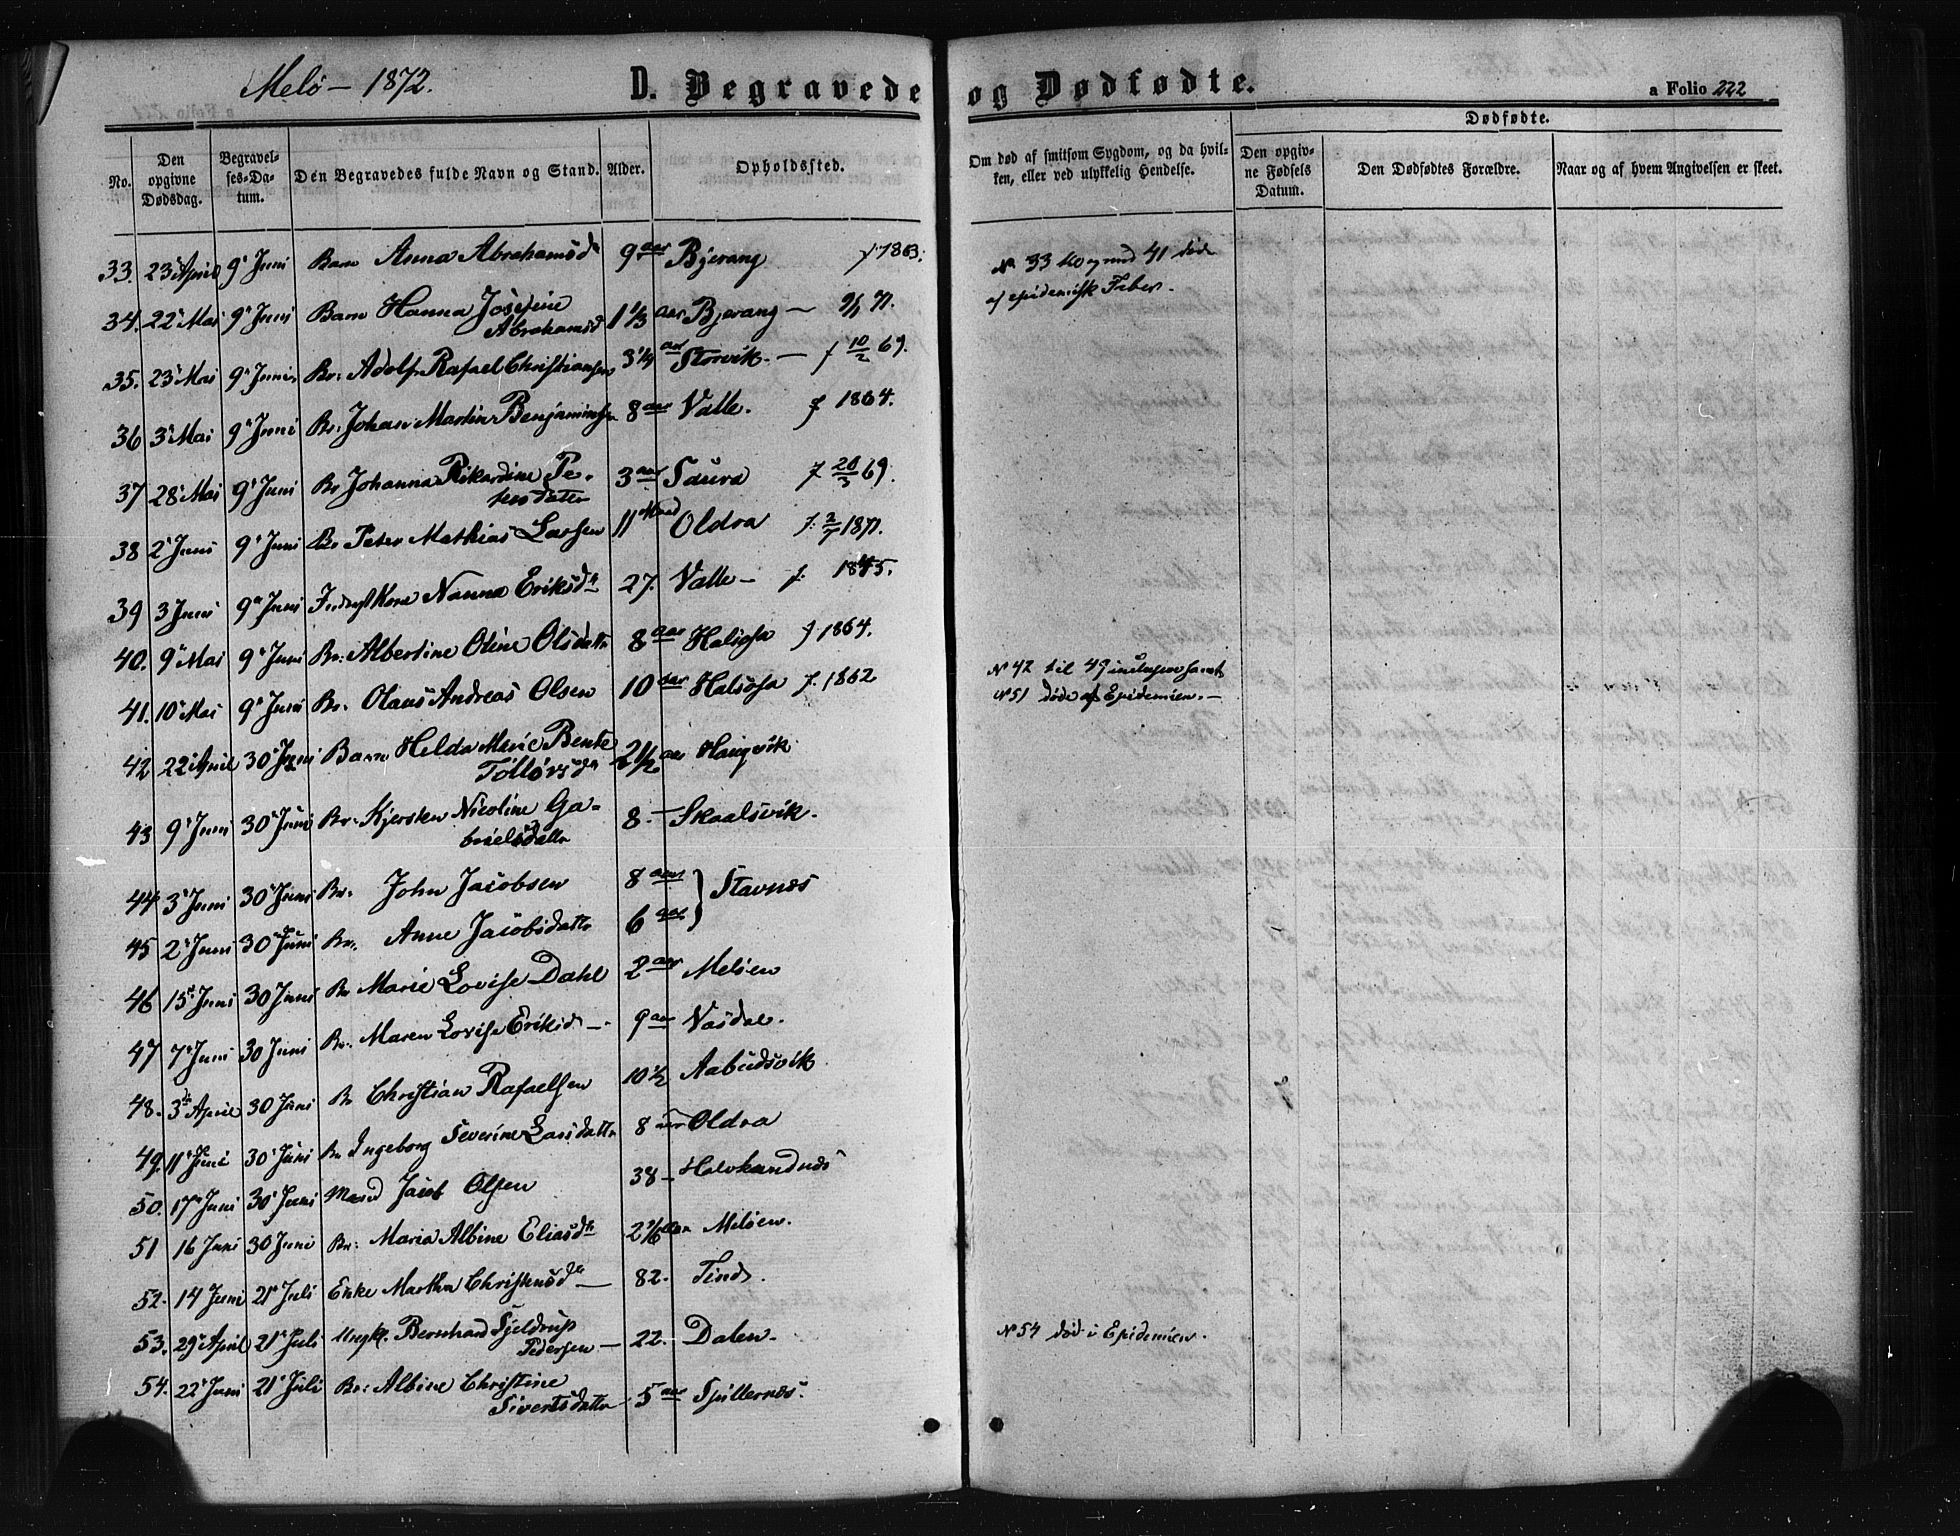 Melö – 1872.
D. Begravede og Dødfødte.
a Folio 222
No.
Den opgivne Dødsdag.
Begravelses-Datum.
Den Begravedes fulde Navn og Stand.
Alder.
Opholdssted.
Om død af smitsom Sygdom, og da hvilken, eller ved ulykkelig Hendelse.
Dødfødte.
Den opgivne Fødsels Datum.
Den Dødfødtes Forældre.
Naar og af hvem Angivelsen er skeet.
33. 23 April 9 Juni Barn Anna Abrahamsd 9 aar Bjerang f 1863.
34. 22 Mai 9 Juni Barn Hanna Josefine Abrahamsd 1 1/3 aar Bjerang – 9/1 71.
35. 23 Mai 9 Juni Br. Adolf Rafael Christiansen 3 1/4 aar Storvik. – f 10/2 69.
36 3 Mai 9 Juni Br. Johan Martin Benjaminsen 8 aar Valle. f 1864.
37 28 Mai 9 Juni Br Johanna Rikardine Petersdatter 3 aar Saura f 20/3 69.
38 2 Juni 9 Juni Br Peter Mathias Larsen 11 Maad Oldra f. 2/7 1871.
39 3 Juni 9 Juni Nanna Eriksd 27. Valle – f. 1845.
40. 9 Mai 9 Juni Br: Albertine Oline Olsdattr 8 aar Halsosa f 1864.
41. 10 Mai 9 Juni Br. Olaus Andreas Olsen 10 aar Halsosa f. 1862
42 22 April 30 Juni Barn Helda Marie Bente Tollevsd 2 1/2 aar Haugvik
43 9 Juni 30 Juni Br. Kjersten Nicoline Gabrielsdattr 8 – Skaalsvik.
44 3 Juni 30 Juni Br. John Jacobsen 8 aar } Stavnæs
45 2 Juni 30 Juni Br. Anne Jacobsdattr 6 aar
46 15 Juni 30 Juni Br Marie Lovise Dahl 2 aar Melöen
47 7 Juni 30 Juni Br. Maren Lovise Eriksd –. 9 aar Vasdal.
48. 3 April 30 Juni Br Christian Rafaelsen 10 1/2 Aabudsvik
49. 11 Juni 30 Juni Br Ingeborg Severine Larsdattr 8 aar Oldra
50. 17 Juni 30 Juni Mand Jacob Olsen 38 –
51 16 Juni 30 Juni Br. Maria Albine Eliasd 2 1/6 aar Melöen.
52. 14 Juni 21 Juli Enke Martha Christensd – 82. Tind.
53. 29 April 21 Juli Ungk. Bernhard Hjeldrup Pedersen – 22. Dalen.
54. 22 Juni 21 Juli Br: Albine Christine Sivertsdattr 5 aar Spillernæs.
N. 33 40 og 41 døde
af epidemisk Feber.
N 42 til 49 inclusive samt
N 51 døde af Epidemien. –
N 54 død i Epidemien.